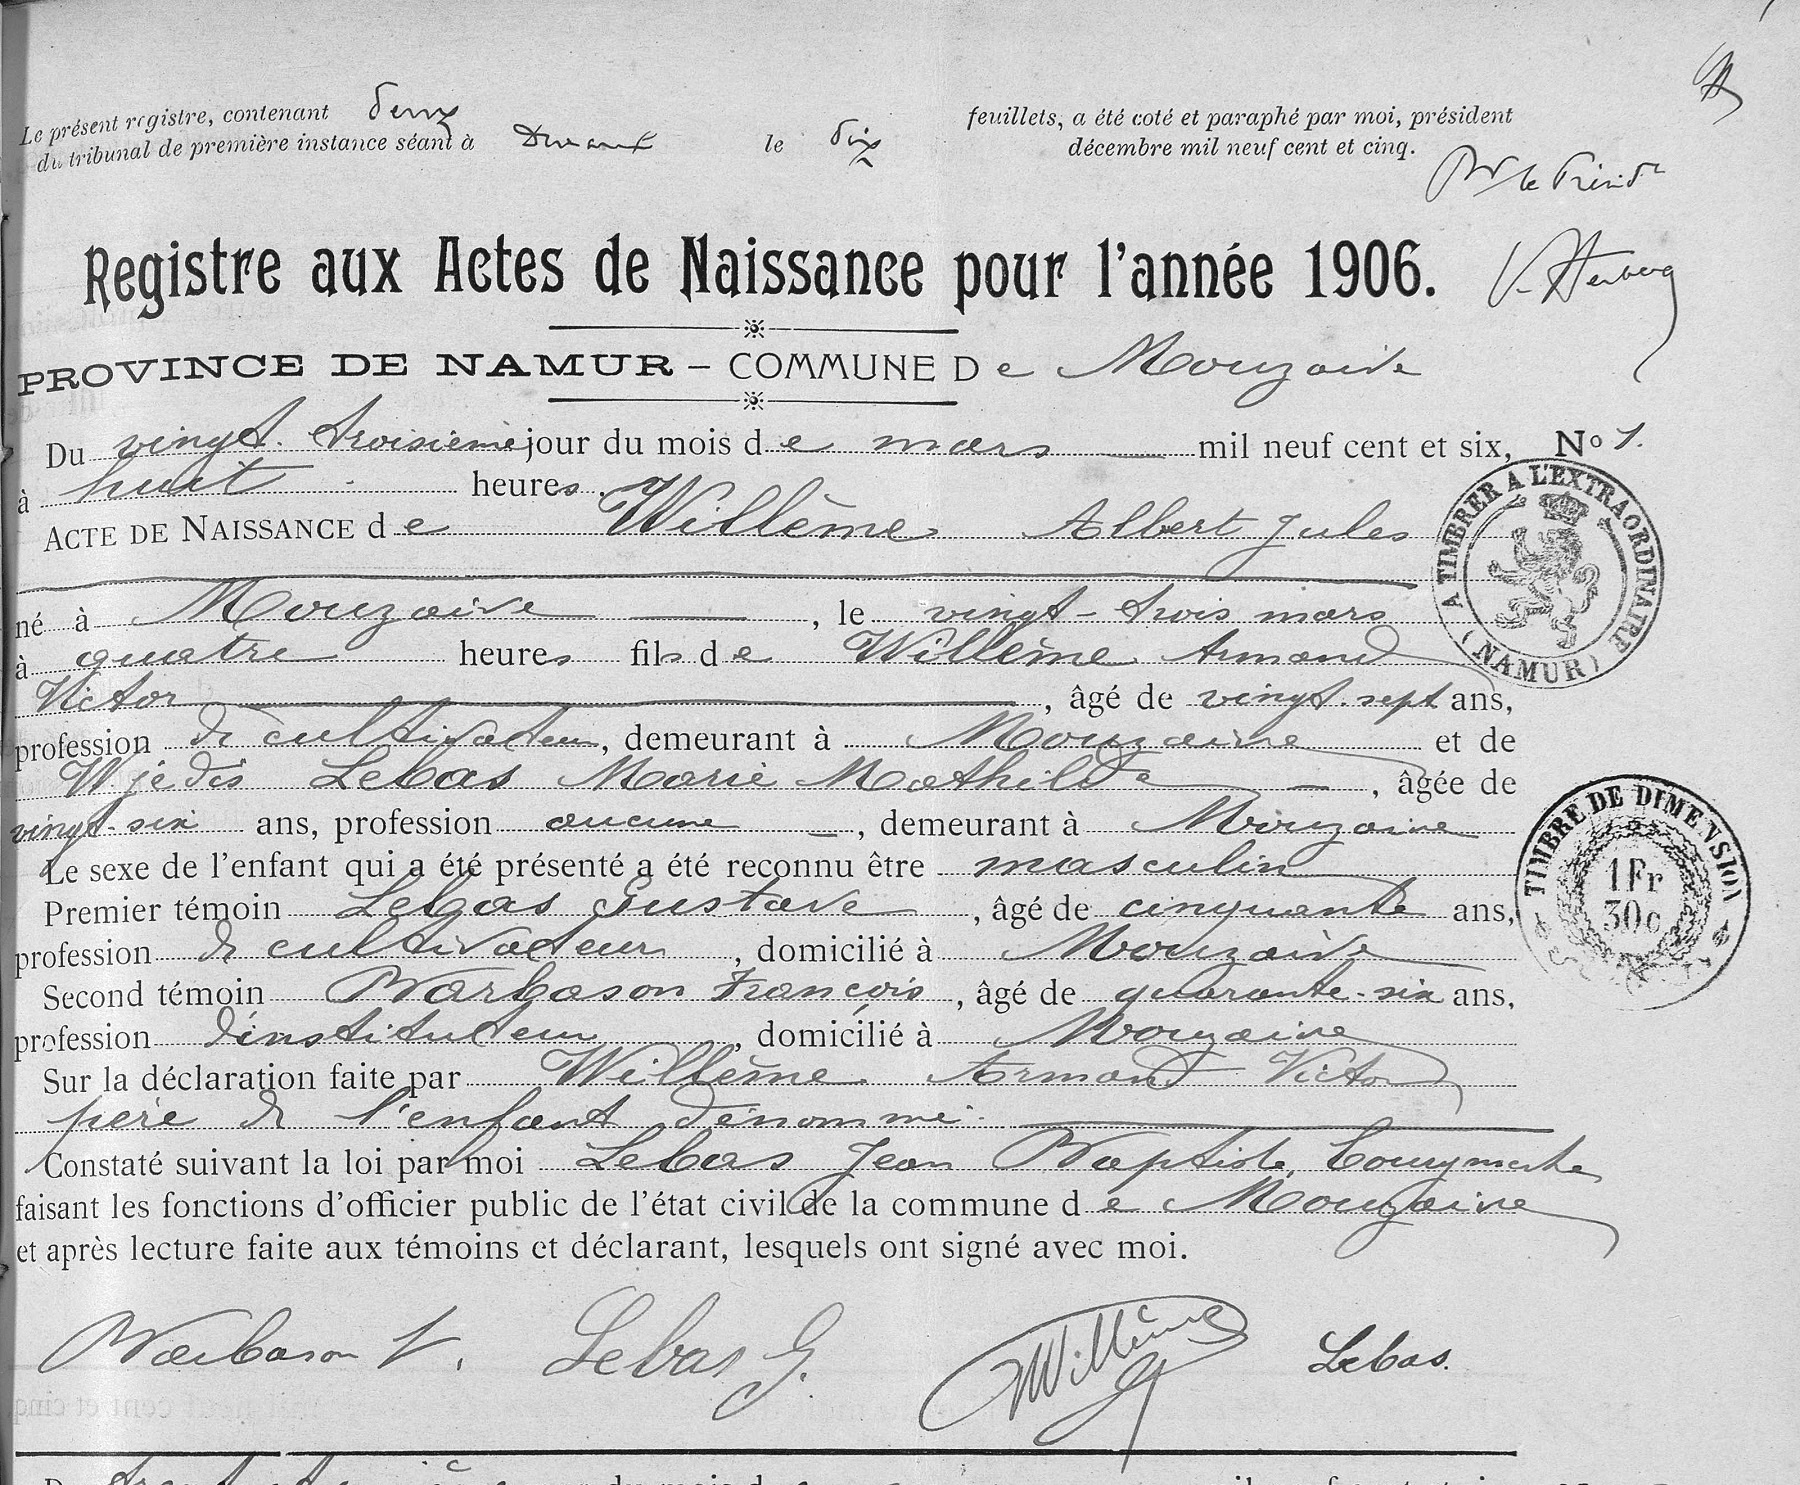 Le présent registre, contenant deux feuillets, a été coté et paraphé par moi, président
du tribunal de première instance séant à Dinant le dix décembre mil neuf cent et cinq.
Registre aux Actes de Naissance pour l'année 1906.
PROVINCE DE NAMUR – COMMUNE De Mouzaive
Du vingt-troisième jour du mois de mars mil neuf cent et six, No 1.
à huit heures.
ACTE DE NAISSANCE de Willème Albert Jules
né à Mouzaive, le vingt-trois mars
à quatre heures fils de Willème Armand
Victor, âgé de vingt-sept ans,
profession de cultivateur, demeurant à Mouzaive et de
Lebas Marie Mathilde, âgée de
vingt-six ans, profession aucune, demeurant à Mouzaive
Le sexe de l'enfant qui a été présenté a été reconnu être masculin
Premier témoin Lebas Gustave, âgé de cinquante ans,
profession de cultivateur, domicilié à Mouzaive
Second témoin Barbason François, âgé de quarante-six ans,
profession d'instituteur, domicilié à Mouzaive
Sur la déclaration faite par Willème Armand Victor
père de l'enfant dénommé
Constaté suivant la loi par moi Lebas Jean Baptiste, Bourgmestre
faisant les fonctions d'officier public de l'état civil de la commune de Mouzaive
et après lecture faite aux témoins et déclarant, lesquels ont signé avec moi.
Barbason F. Lebas G. Willème Lebas.
A TIMBRER A L'EXTRAORDINAIRE
(NAMUR)
TIMBRE DE DIMENSION
1 Fr
30 c